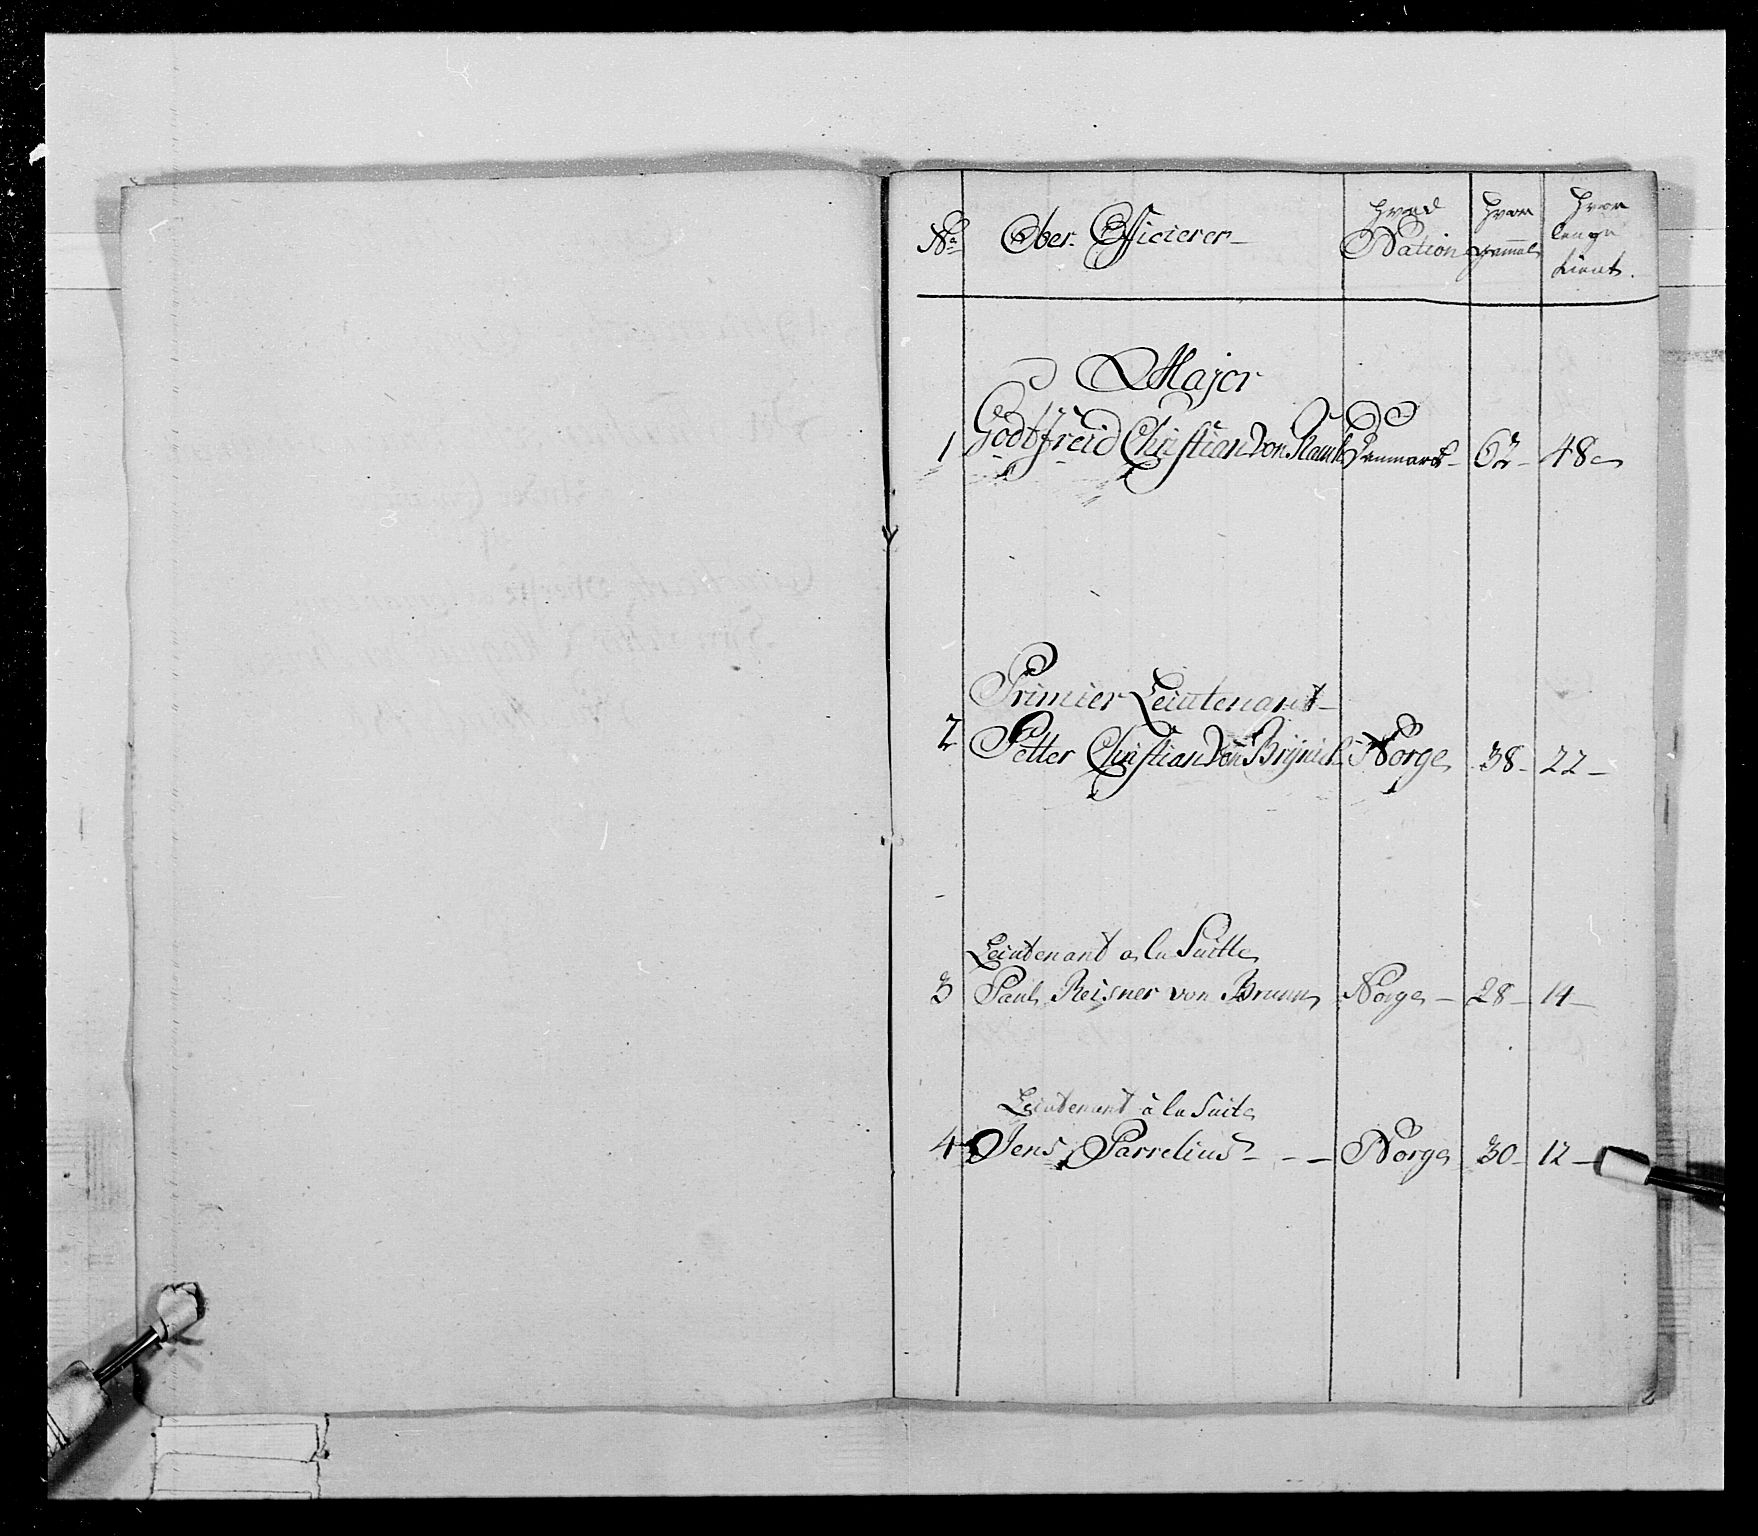 No Ober Officierer hvad Nation hvor gammel hvor lenge tient.
Major
1 Godtfreid Christian von Danmarck 62 48
Primier Leiutenant
2 Petter Christian Von Norge 38 22
Leiutenant a la Suitte
3 Paul Reisner von Bruun Norge 28 14
Leiutenant à la Suite
4 Jens Parrelius Norge 30 12